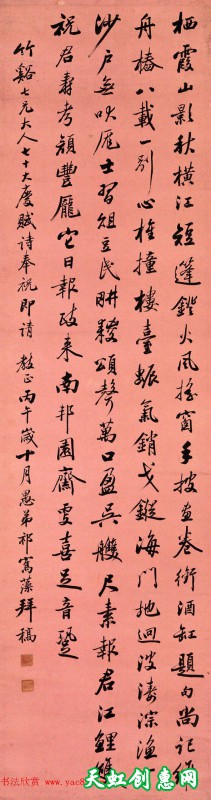 栖霞山影秋横江短蓬镫火风摇窗手披画卷衔酒缸题句尚记维
舟桩八载一别心桩撞楼台蜃气销戈鏦海门地迥波淙淙渔
沙户无吠厖士习俎豆民耕耰颂声万口盈吴艭尺素报君江鲤双
祝君寿考颜丰庞它日报政来南邦园斋更喜足音跫
竹谿七兄大人七十大庆赋诗奉祝即请教正丙午岁十月愚弟祁寯藻拜稿
书法欣赏
天虹创意网